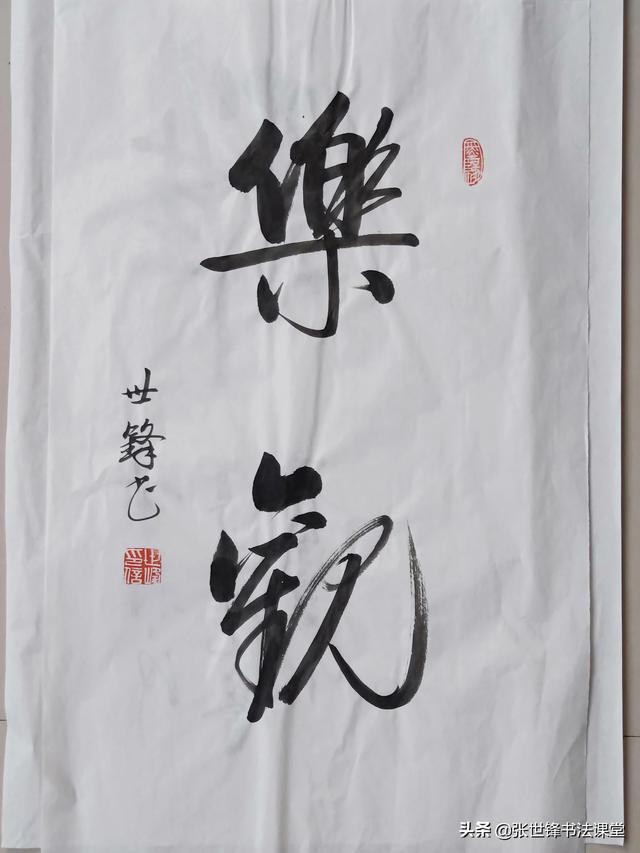 樂觀
世鋒书
头条 @张世锋书法课堂